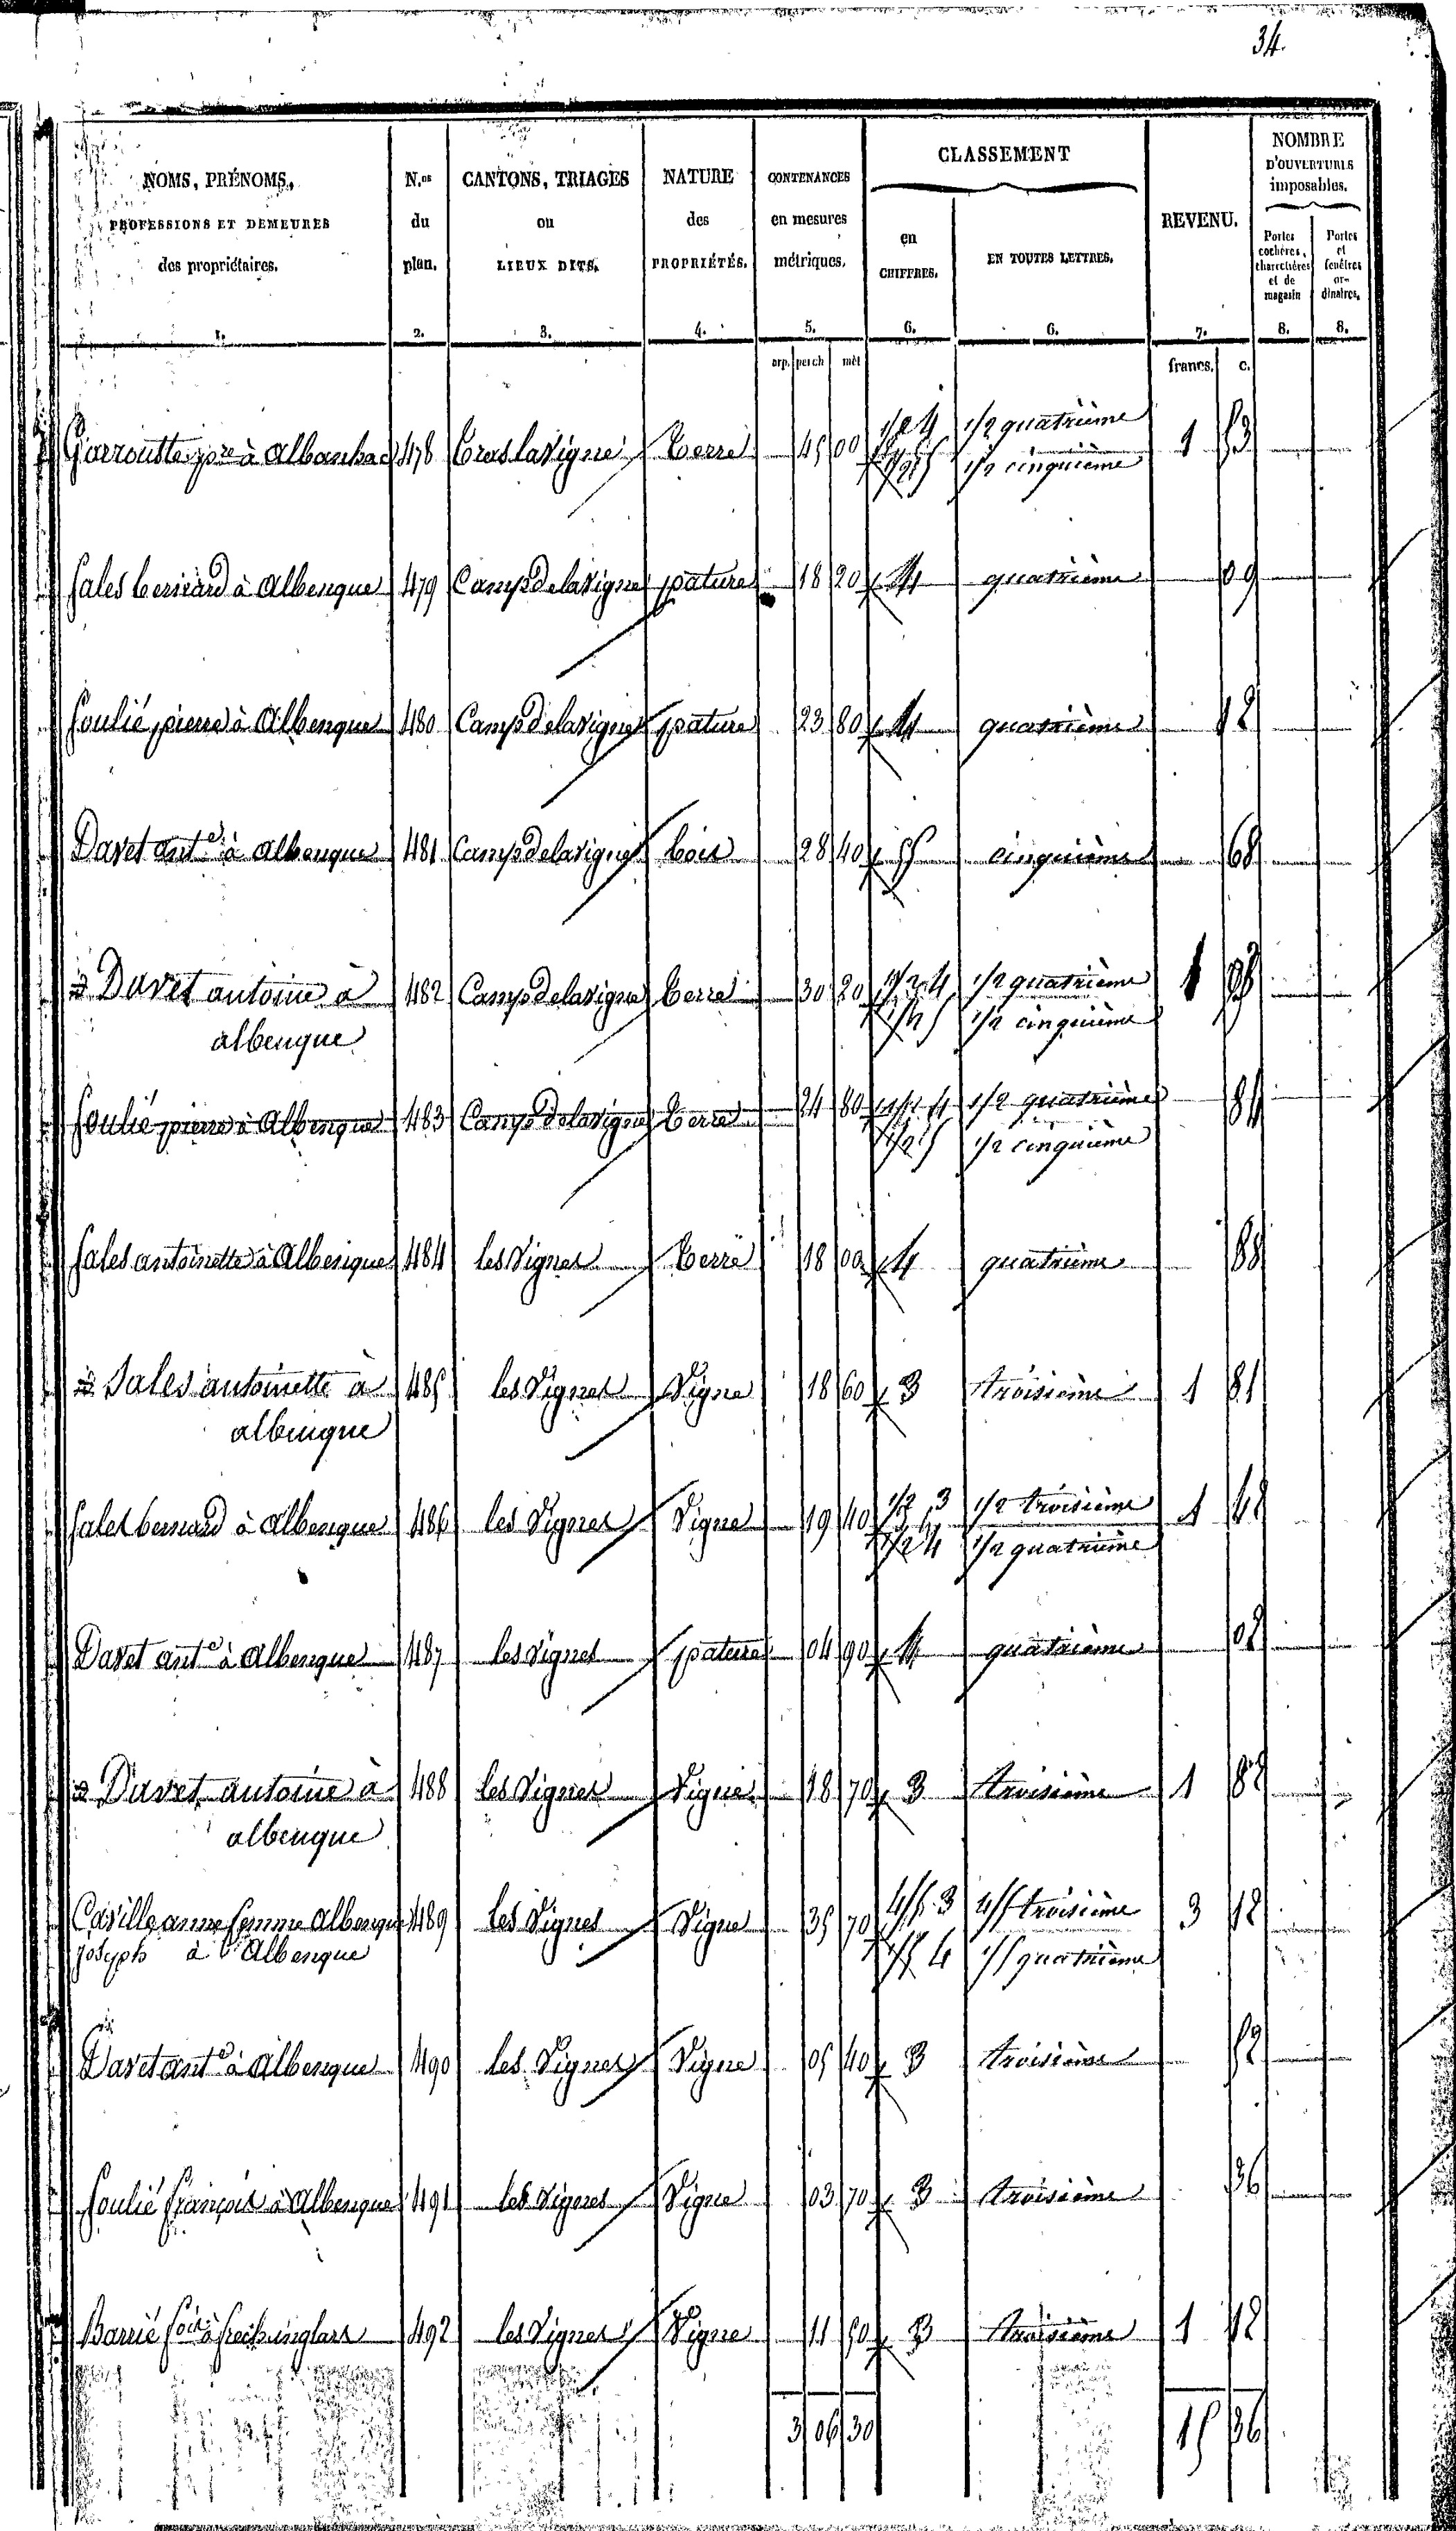 34.
NOMS, PRÉNOMS, PROFESSIONS ET DEMEURES des propriétaires. 1.
N.os du plan. 2.
CANTONS, TRIAGES ou LIEUX DITS. 3.
NATURE des PROPRIÉTÉS. 4.
CONTENANCES en mesures métriques. 5.
CLASSEMENT
en CHIFFRES. 6.
EN TOUTES LETTRES. 6.
REVENU. 7.
NOMBRE D'OUVERTURES imposables.
Portes cochères, charretières et de magasin 8.
Portes et fenêtres ordinaires. 8.
arp. perch mèt francs. c.
Garroutte à 478 lavigne Terre 45 00 1/2 4 1/2 quatrième 1 53
1/2 5 1/2 cinquième
Sales bernard à Albenque 479 Camp delavigne pature 18 20 4 quatrième 09
Soulié pierre à Albenque 480 Camp delavigne pature 23 80 4 quatrième 12
Davet ant.e à albenque 481 Camp delavigne bois 28 40 5 cinquième 68
Davet antoine à 482 Camp delavigne Terre 30 20 1/2 4 1/2 quatrième 1
albenque 1/2 5 1/2 cinquième
Soulié pierre à Albenque 483 Camp delavigne Terre 24 80 1/2 4 1/2 quatrième 84
1/2 5 1/2 cinquième
Sales antoinette à Albenque 484 les Vignes Terre 18 00 4 quatrième 88
Sales antoinette à 485 les Vignes Vigne 18 60 3 troisième 1 81
albenque
Sales bernard à Albenque 486 les Vignes Vigne 19 40 1/2 3 1/2 troisième 1 48
1/2 4 1/2 quatrième
Davet ant.e à Albenque 487 les Vignes pature 04 90 4 quatrième 02
Davet antoine à 488 les Vignes Vigne 18 70 3 troisième 1 82
albenque
anne femme Albenque 489 les Vignes Vigne 35 70 4/5 3 4/5 troisième 3 12
joseph à l'Albenque 1/5 4 1/5 quatrième
Davet ant.e à Albenque 490 les Vignes Vigne 05 40 3 troisième 52
Soulié françois à Albenque 491 les Vignes Vigne 03 70 3 troisième 36
Barrié à 492 les Vignes Vigne 11 50 3 troisième 1 12
3 06 30 15 36